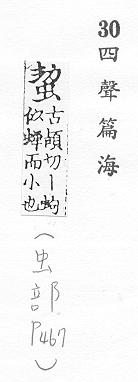 30四聲篇海
蛪
古頡切丨蚼
似蟬而小也
(虫部P467)